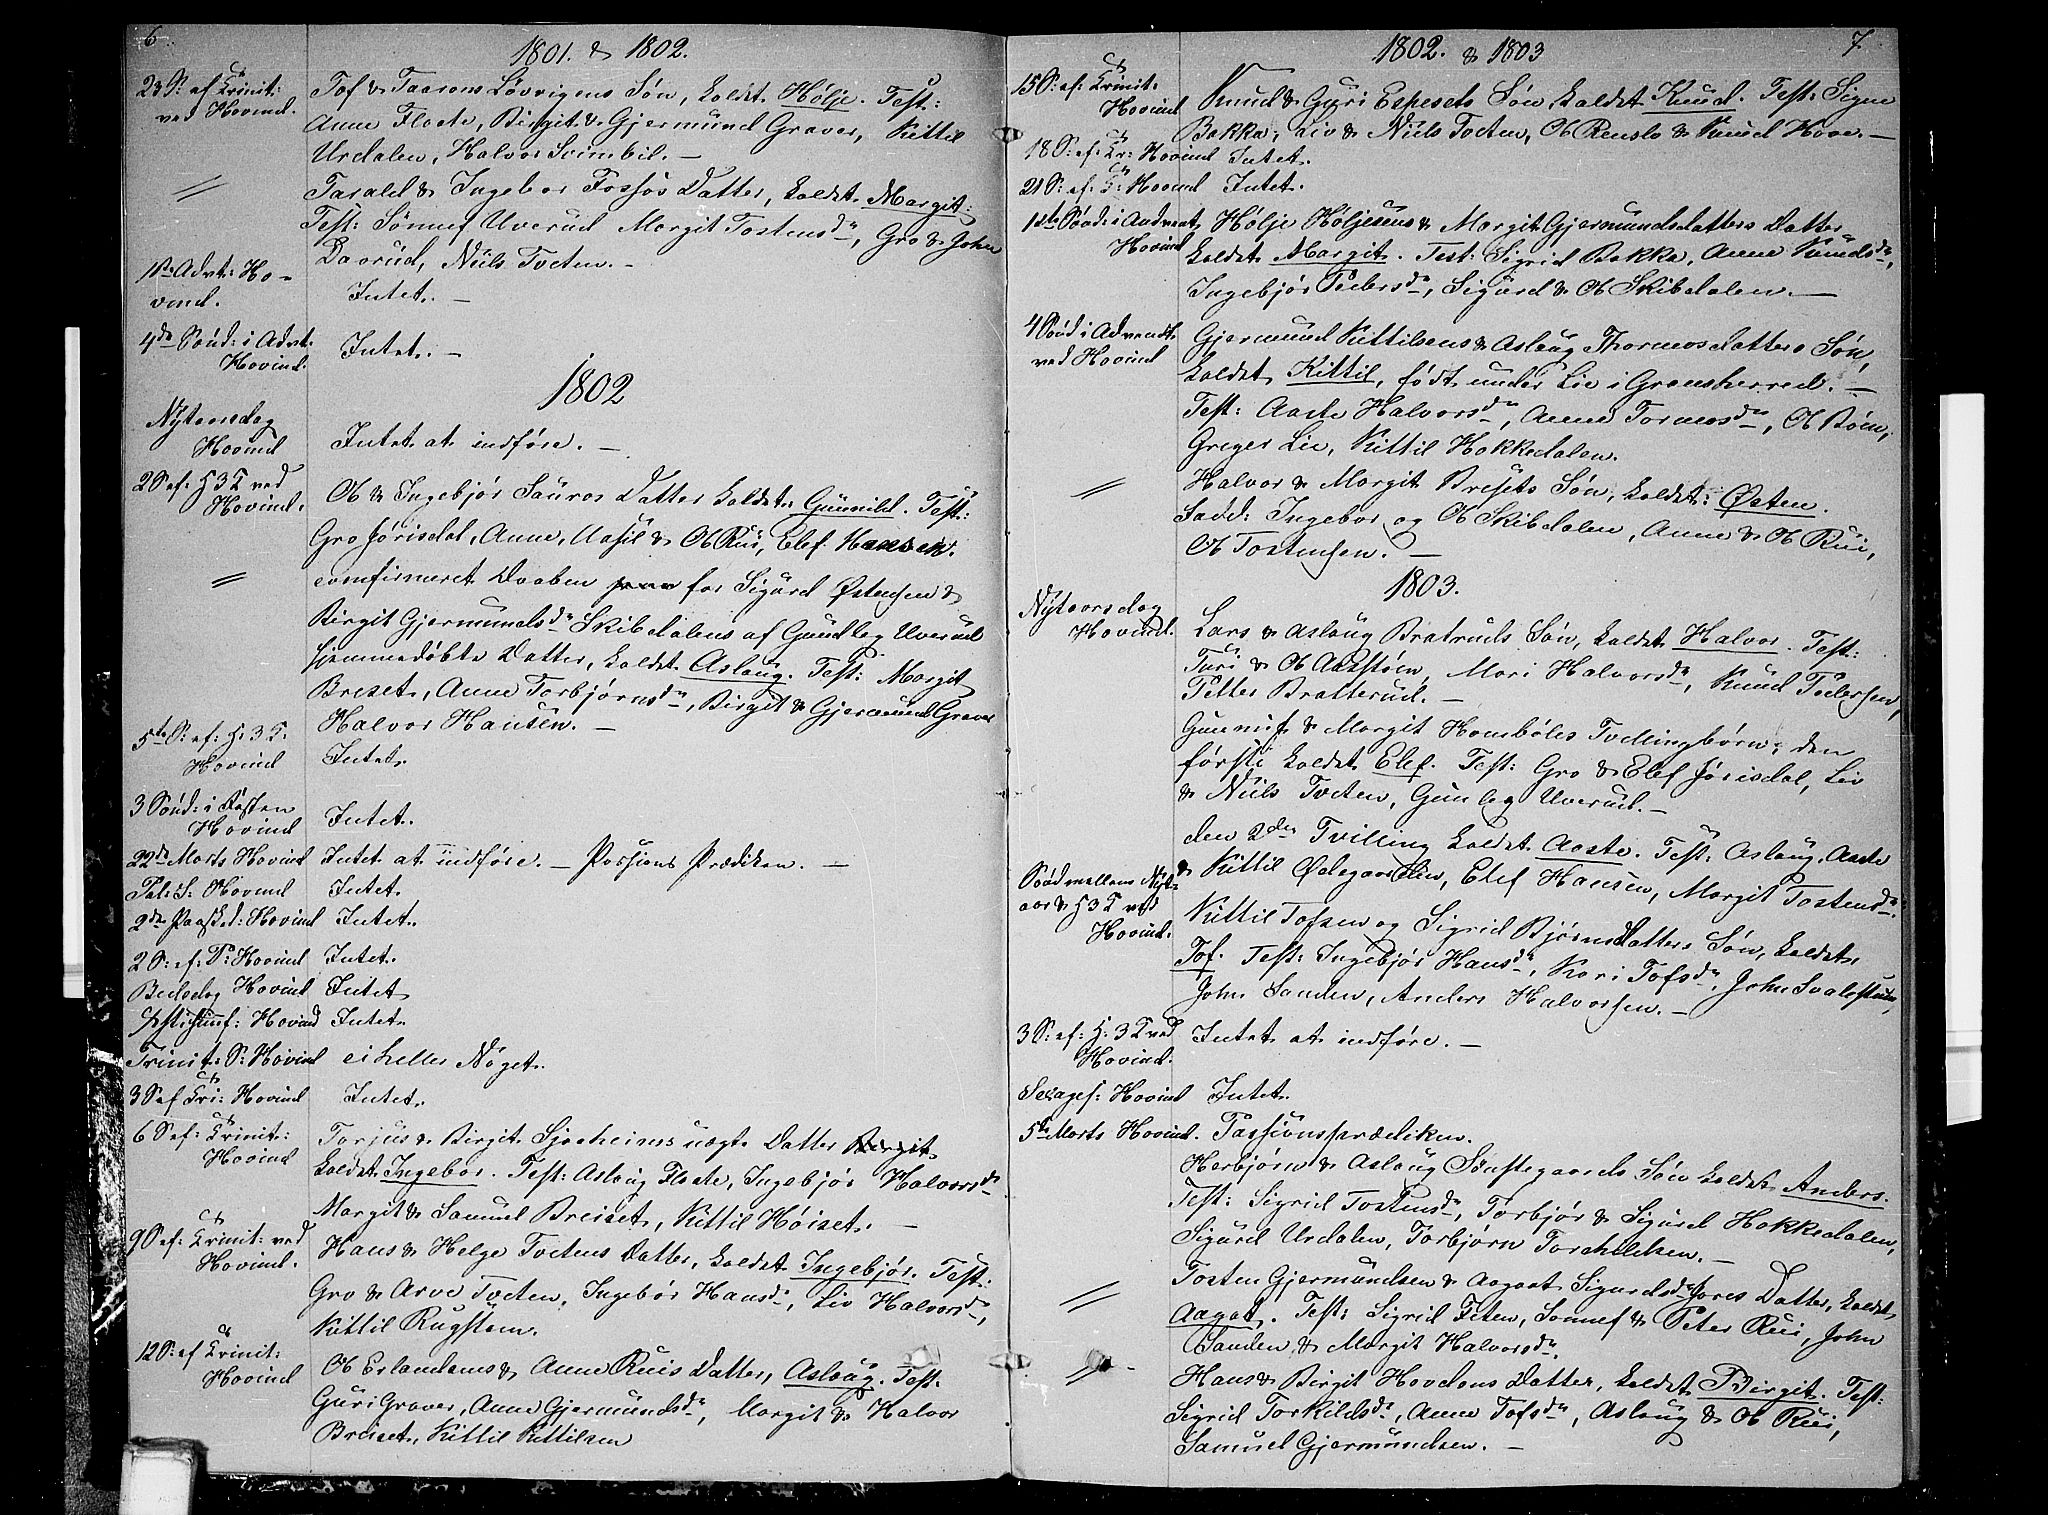 6
1801. & 1802.
23 S: ef Trinit:
ved Hovind.
Tof & Taarons Løvvigens Søn, kaldet Hølje. Test:
Anne Flaate, Birgit & Gjermund Graver, Kittil
Urdalen, Halvor Svimbil. —
〃
Tarald & Ingebor Fossøs Datter, kaldet Margit:
Test: Sønnef Uverud Margit Tostensdr, Gro & John
Daarud, Niils Tveten. —
1ste Advt: Ho-
vind.
Intet. —
4de Sønd: i Advt.
Hovind.
Intet. —
1802
Nytaarsdag
Hovind
Intet at indføre. —
2 S ef: H 3 K ved
Hovind.
Ob & Ingebjør Sauros Datter kaldet: Gunnild. Test:
Gro Jørisdal, Anne, Aasil & Ob Rui, Elef Hansen.
〃
comfirmeret Daaben for Sigurd Østensen &
Birgit Gjermundsdr Skibdalens af Gundleg Uverud
hjemmedøbte Datter, kaldet Aslaug. Test: Margit
Breset, Anne Torbjørnsdr, Birgit & Gjermund Graver
Halvor Hansen. —
5te S: ef: H. 3 K.
Hovind
Intet.
3 Sønd: i Fasten
Hovind
Intet.
22de Marts Hovind Intet at indføre. — Passions Prædiken. —
Pal: S: Hovind Intet.
2de Paasked: Hovind Intet.
2 S: ef: P: Hovind Intet.
Bededag Hovind Intet
Hovind Intet.
Trinit: S: Hovind ei heller Noget.
3 S ef Tri: Hovind Intet.
6 S ef: Trinit:
Hovind
Torjus & Birgit Sjaaheims uægte Datter Birgit
kaldet Ingebor. Test: Aslaug Flaate, Ingebjør Halvorsdr
Margit & Samuel Breiset, Kittil Høiset. —
9 S ef: Trinit: ved
Hovind.
Hans & Helge Tvetens Datter, kaldet Ingebjør. Test:
Gro & Arve Tveten, Ingebør Hansdr, Liv Halvorsdr,
Kittil Rugstem.
12 S: ef Trinit:
Hovind
Ob Erlandsens & Anne Ruis Datter, Aslaug. Test:
Guri Graver, Anne Gjermundsdr, Margit & Halvor
Breiset, Kittil Kittilsen
1802. & 1803
7
15 S: ef: Trinit:
Hovind
Knud & Guri Espesets Søn kaldet Knud. Test: Signe
Bakka, Liv & Niils Tveten, Ob Renslo & Knud Hove. —
18 S: ef: Tr: Hovind Intet.
21 S: ef: T: Hovind Intet.
1ste Sønd: i Advent
Hovind
Hølje Høljesens & Margit Gjermundsdatters Datter
kaldet Margit. Test: Sigrid Bakka, Anne Knudsdr,
Ingebjør Pedersdr, Sigurd & Ob Skibdalen. —
4 Sønd: i Advendt
ved Hovind
Gjermund Kittilsens & Aslaug Thormosdatters Søn,
kaldet Kittil, født under Lie i Gransherred. —
Test: Aaste Halvorsdr, Anne Tormosdr, Ob Bøen,
Greger Lie, Kittil Hakkedalen.
〃
Halvor & Margit Bresets Søn, kaldet: Østen.
Fadd: Ingebor og Ob Skibdalen, Anne & Ob Rui,
Ob Tostensen. —
1803.
Nytaarsdag
Hovind.
Lars & Aslaug Bratruds Søn, kaldet Halvor. Test:
Turi & Ob Aasstøen, Mari Halvorsdr, Knud Pedersen,
Petter Bratterud. —
Gunnuf & Margit Hombøles Tvillingbørn; den
første kaldet Elef. Test: Gro & Elef Jørisdal, Liv
& Niils Tveten, Gunleg Uverud. —
den 2den Tvilling kaldet Aaste. Test: Aslaug, Aaste
& Kittil Ødegaarden, Elef Hansen, Margit Tostensdr.
Sønd mellem Nyt-
aar & H 3 K ved
Hovind.
Kittil Tofsen og Sigrid Bjørnsdatters Søn, kaldet
Tof. Test: Ingebjør Hansdr, Kari Tofsdr, John Svalestuen,
John Sanden, Anders Halvorsen. —
3 S: ef: H: 3 K ved
Hovind.
Intet at indføre. —
Sexages: Hovind Intet.
5te Marts Hovind. Passionsprædiken.
Herbjørn & Aslaug Sønstegaards Søn kaldet Anders.
Test: Sigrid Tostensdr, Torbjør & Sigurd Hakkedalen,
Sigurd Urdalen, Torbjørn Torchildsen. —
〃
Tosten Gjermundsen & Aagaat Sigurdsdr Datter, kaldet
Aagat. Test: Sigrid Teten, Sønnef & Peter Rui, John
Sanden & Margit Halvorsdr.
〃
Hans & Birgit Hovdens Datter, kaldet Birgit. Test:
Sigrid Torkildsdr, Anne Tofsdr, Aslaug & Ob Rui,
Samuel Gjermundsen. —